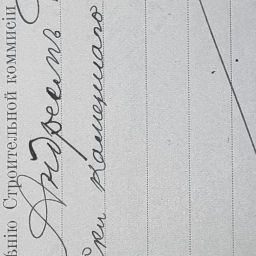 ѣнію Строительной коммисіи
Андреемъ
ки каменнаго